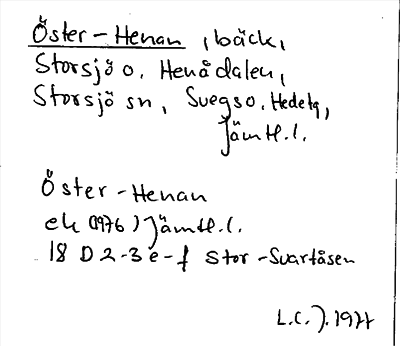 Öster-Henan, bäck,
Storsjö o, Henådalen,
Storsjö sn, Svegs o, Hedetg,
Jämtl.l.
Öster-Henan
ek (1976) Jämtl.l.
18 D 2-3 e-f Stor-Svartåsen
L.C.J. 1977